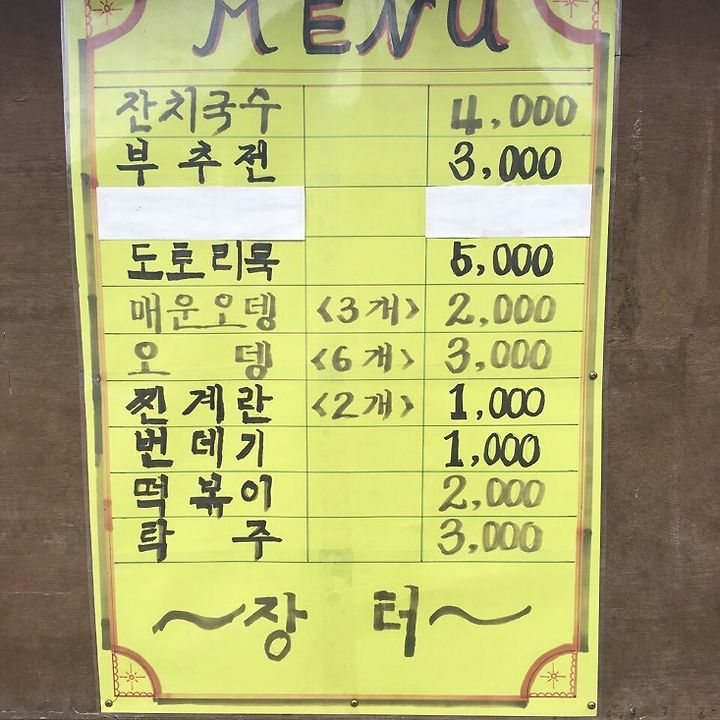 MENU
잔치국수 4,000
부추전 3,000
도토리묵 5,000
매운오뎅 <3개> 2,000
오 뎅 <6개> 3,000
찐계란 <2개> 1,000
번데기 1,000
떡볶이 2,000
탁 주 3,000
~장 터~